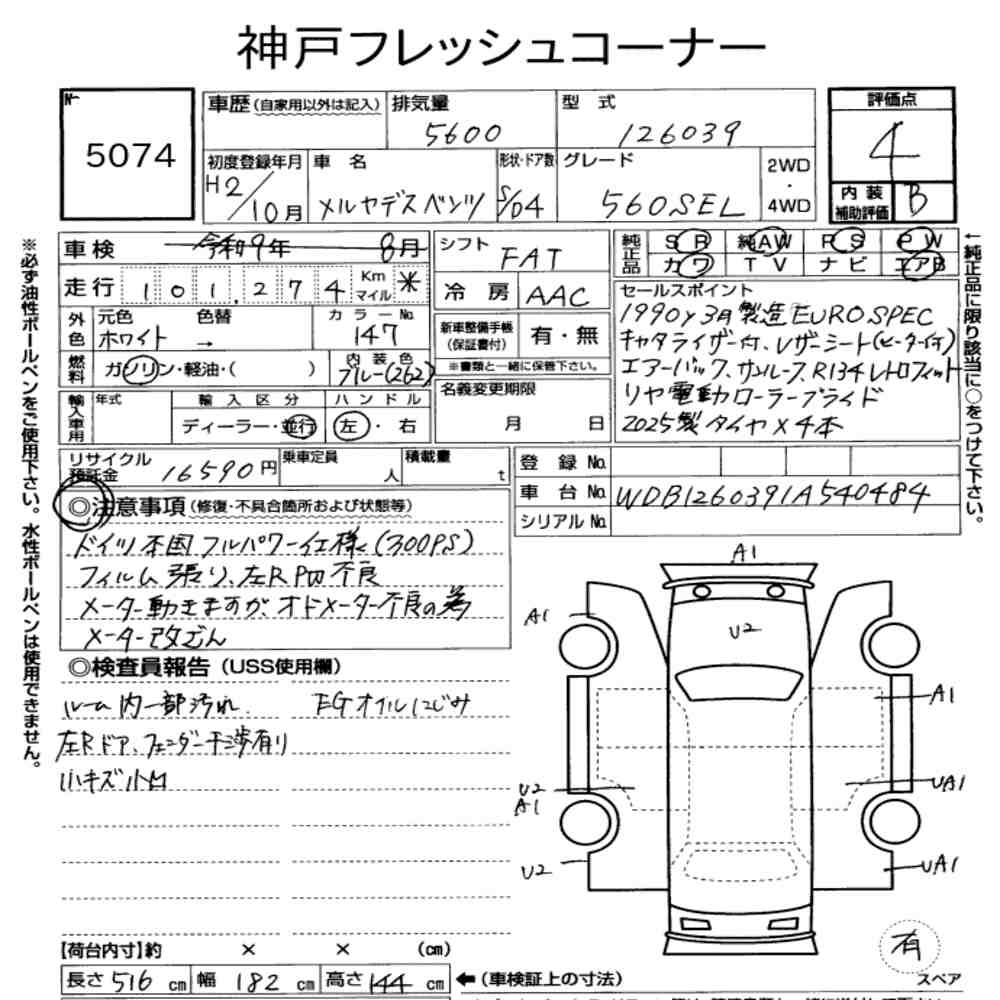 神戸フレッシュコーナー
№
5074
車歴(自家用以外は記入)
排気量
5600
型 式
126039
評価点
4
内装
補助評価
B
初度登録年月
H2/10月
車 名
メルセデスベンツ
形状・ドア数
S/D4
グレード
560SEL
2WD
・
4WD
※必ず油性ボールペンをご使用下さい。水性ボールペンは使用できません。
車検 令和9年 8月
走行 101,274 Km マイル *
外色 元色 色替 カラーNo.
ホワイト → 147
燃料 ガソリン・軽油・( ) 内装色
ブルー(262)
輸入車用 年式 輸入区分 ハンドル
ディーラー・並行 左・右
シフト FAT
冷房 AAC
新車整備手帳
(保証書付) 有・無
※書類と一緒に保管下さい。
名義変更期限
月 日
純正品 SR 純AW PS PW
カワ TV ナビ エアB
←純正品に限り該当に○をつけて下さい。
セールスポイント
1990y3月製造EUROSPEC
キャタライザー付、レザーシート(ヒーター付)
エアーバック、サンルーフ、R134レトロフィット
リヤ電動ローラーブラインド
2025製タイヤ×4本
リサイクル
預託金 16590円
乗車定員 人
積載量 t
登録No.
車台No. WDB1260391A540484
シリアルNo.
◎注意事項(修復・不具合箇所および状態等)
ドイツ本国フルパワー仕様(300PS)
フィルム張り、左RPW不良
メーター動きますが、オドメーター不良の為
メーター改ざん
◎検査員報告(USS使用欄)
ルーム内一部汚れ EGオイルにじみ
左Rドア、フェンダー干渉有り
小キズ小凹
A1
A1
U2
A1
U2
A1
UA1
U2
UA1
有
スペア
【荷台内寸】約 × × (cm)
長さ 516 cm 幅 182 cm 高さ 144 cm
←(車検証上の寸法)